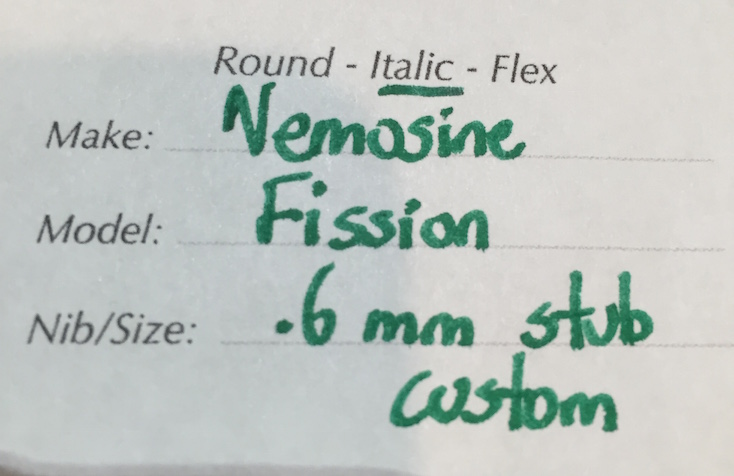 Round - Italic - Flex
Make: Nemosine
Model: Fission
Nib/Size: .6 mm stub
custom